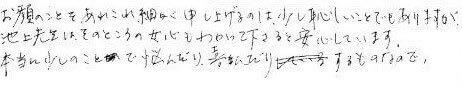 お顔のことをあれこれ細かく申し上げるのは、少し恥しいことでもありますが、
池上先生はそのところの女心もわかって下さると安心しています。
本当に少しのことで悩んだり、喜んだりするものなので、